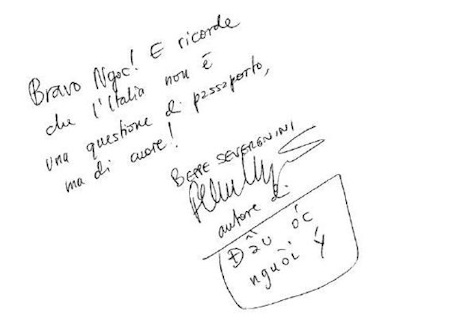 Bravo Ngoc! E ricorde
che l'Italia non è
una questione di passaporto,
ma di cuore!
BEPPE SEVERGNINI
autore di
Đầu óc
người Ý